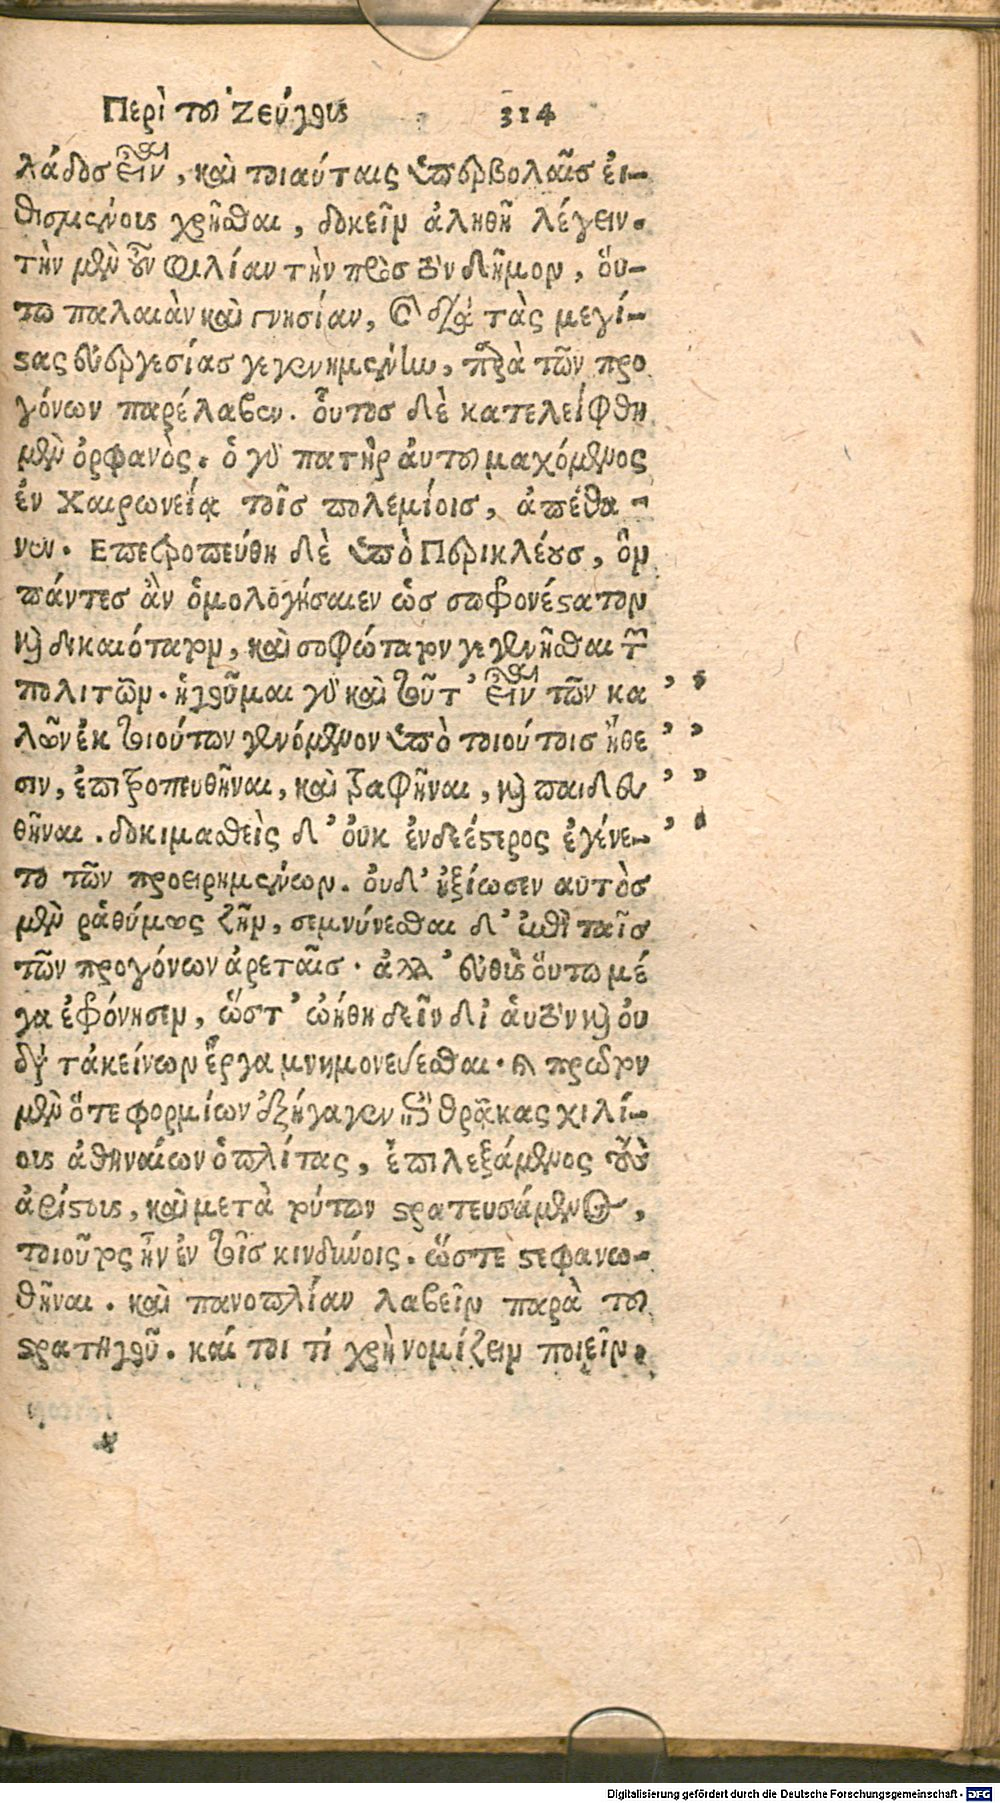 Περὶ τοῦ Ζεύγους 314
λάδος εἶναι, καὶ τοιαύταις ὑπερβολαῖς εἰ-
θισμένοις χρῆσθαι, δοκεῖν ἀληθῆ λέγειν.
τὴν μὲν οὖν φιλίαν τὴν πρὸς τὸν δῆμον, οὕ-
τω παλαιὰν καὶ γνησίαν, καὶ διὰ τὰς μεγί-
στας εὐεργεσίας γεγενημένην, παρὰ τῶν προ
γόνων παρέλαβεν. οὗτος δὲ κατελείφθη
μὲν ὀρφανὸς. ὁ γὰρ πατὴρ αὐτοῦ μαχόμενος
ἐν Χαιρωνείᾳ τοῖς πολεμίοις, ἀπέθα-
νεν. Επετροπεύθη δὲ ὑπὸ Περικλέους, ὃν
πάντες ἂν ὁμολογήσαιεν ὡς σωφρονέστατον
καὶ δικαιότατον, καὶ σοφώτατον γεγενῆσθαι τῶν
πολιτῶν. ἡγοῦμαι γὰρ καὶ τοῦτ’ εἶναι τῶν κα ’ ’
λῶν ἐκ τοιούτων γενόμενον ὑπὸ τοιούτοις ἤθε ’ ’
σιν, ἐπιτροπευθῆναι, καὶ τραφῆναι, καὶ παιδευ ’ ’
θῆναι. δοκιμασθεὶς δ’ οὐκ ἐνδεέστερος ἐγένε- ’ ’
το τῶν προειρημένων. οὐδ’ ἠξίωσεν αὐτὸς
μὲν ῥαθύμως ζῆν, σεμνύνεσθαι δ’ ἐπὶ ταῖς
τῶν προγόνων ἀρεταῖς. ἀλλ’ εὐθὺς οὕτω μέ
γα ἐφρόνησεν, ὥστ’ ᾠήθη δεῖν δι’ αὑτὸν καὶ οὐ
δὲ τἀκείνων ἔργα μνημονεύεσθαι. καὶ πρῶτον
μὲν ὅτε φορμίων ἐξήγαγεν ἐπὶ θρᾷκας χιλί-
ους ἀθηναίων ὁπλίτας, ἐπιλεξάμενος τοὺς
ἀρίστους, καὶ μετὰ τούτων στρατευσάμενος,
τοιοῦτος ἦν ἐν τοῖς κινδύνοις. ὥστε στεφανω-
θῆναι. καὶ πανοπλίαν λαβεῖν παρὰ τοῦ
στρατηγοῦ. καί τοι τί χρὴ νομίζειν ποιεῖν.
Digitalisierung gefördert durch die Deutsche Forschungsgemeinschaft - DFG